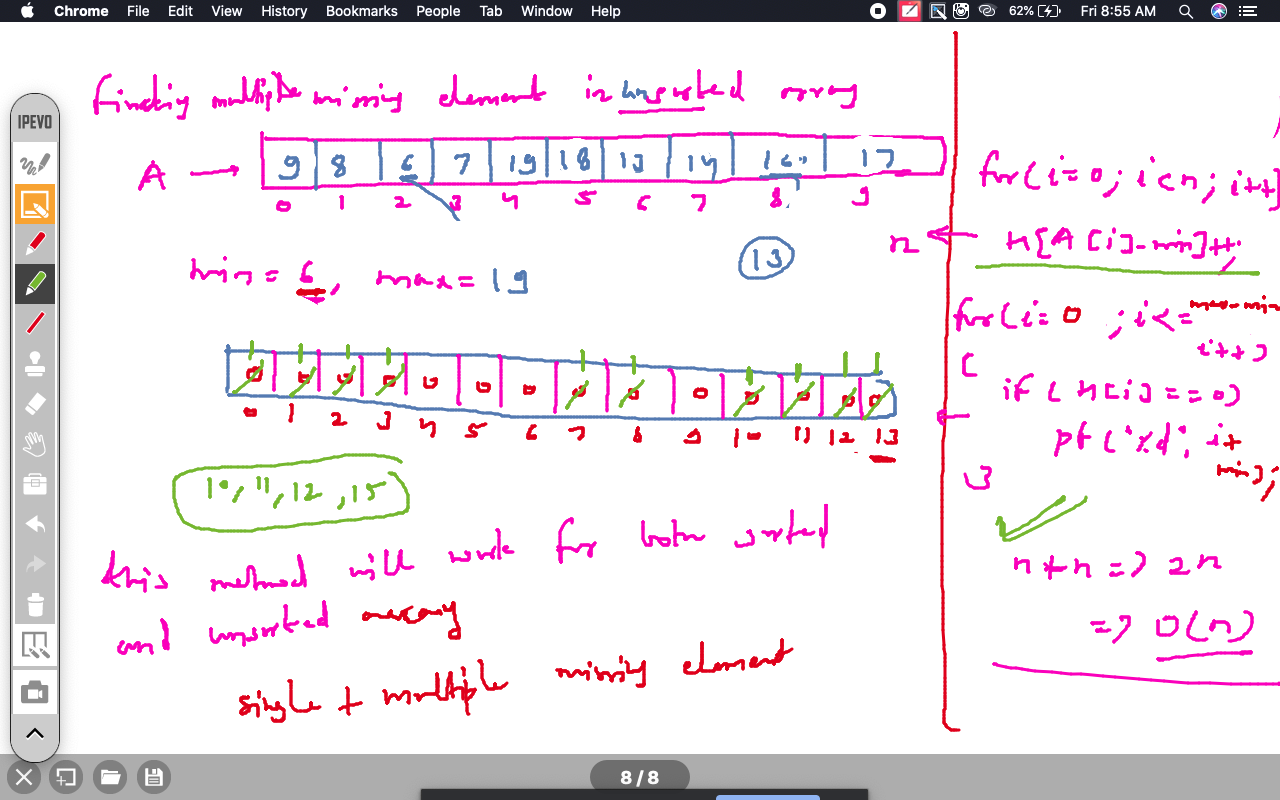 Chrome File Edit View History Bookmarks People Tab Window Help 62% Fri 8:55 AM
IPEVO
finding multiple missing element in unsorted array
A → 9 8 6 7 19 18 13 14 16 17
0 1 2 3 4 5 6 7 8 9
min = 6, max = 19
13
0 0 0 0 0 0 0 0 0 0 0 0 0 0
0 1 2 3 4 5 6 7 8 9 10 11 12 13
10, 11, 12, 15
this method will work for both sorted
and unsorted array
single + multiple missing element
for(i=0; i<n; i++)
n ← H[A[i]-min]++;
for(i=0 ; i<= max-min
i++)
{
if (H[i]==0)
pf("%d", i+
min);
}
n+n => 2n
=> O(n)
8 / 8